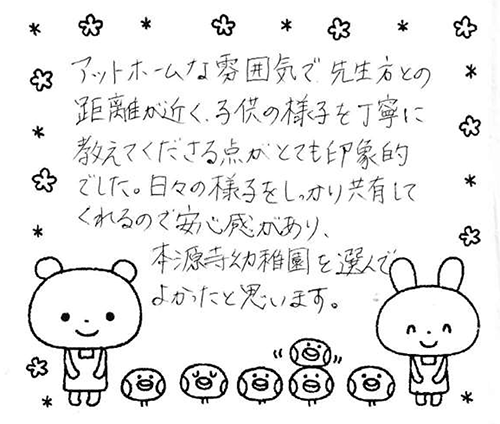 アットホームな雰囲気で、先生方との
距離が近く、子供の様子を丁寧に
教えてくださる点がとても印象的
でした。日々の様子をしっかり共有して
くれるので安心感があり、
本源寺幼稚園を選んで
よかったと思います。